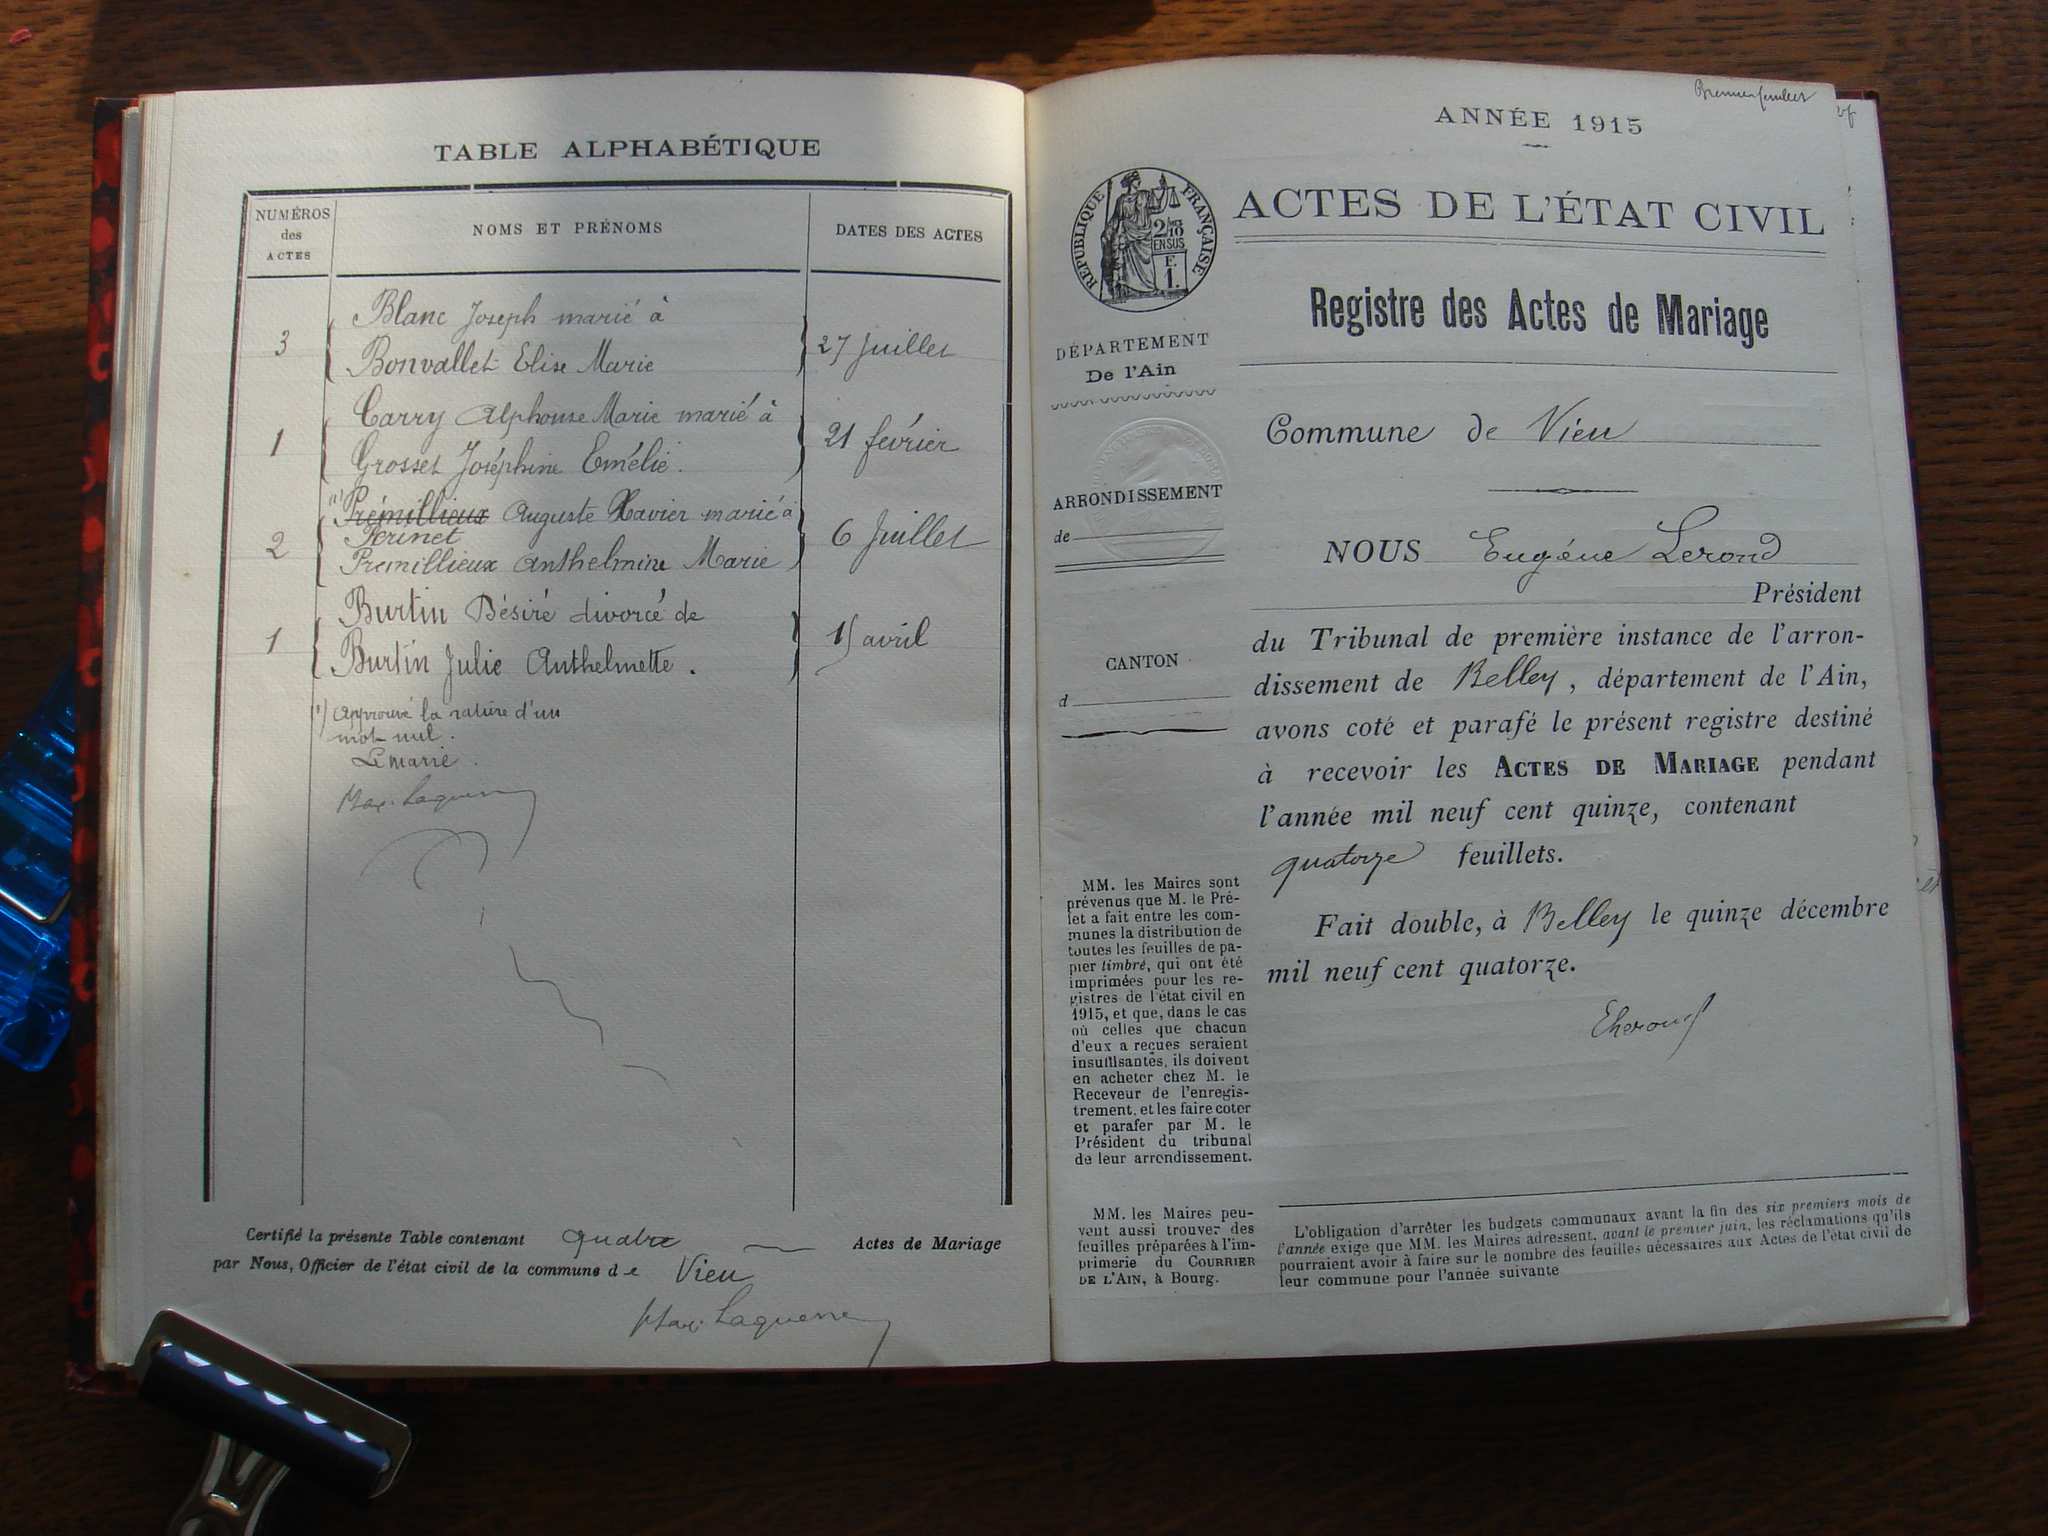 TABLE ALPHABÉTIQUE
NUMÉROS
des
ACTES
NOMS ET PRÉNOMS
DATES DES ACTES
3
Blanc Joseph marié à
Bonvallet Elise Marie
27 Juillet
1
Carry Alphonse Marie marié à
Grosset Joséphine Emélie.
21 février
2
(1) Prémillieux Auguste Xavier marié à
Perinet
Premillieux Anthelmine Marie
6 Juillet
1
Burtin Désiré divorcé de
Burtin Julie Anthelmette.
15 avril
(1) Approuvé la rature d'un
mot nul.
Le maire.
Max. Laguerre
Certifié la présente Table contenant quatre Actes de Mariage
par Nous, Officier de l'état civil de la commune de Vieu
Max. Laguerre
Premier feuillet
ANNÉE 1915
RÉPUBLIQUE FRANÇAISE
2/10
EN SUS
E.
1.
ACTES DE L'ÉTAT CIVIL
Registre des Actes de Mariage
DÉPARTEMENT
De l'Ain
ARRONDISSEMENT
de
CANTON
d
Commune de Vieu
NOUS Eugène Lerond
Président
du Tribunal de première instance de l'arron-
dissement de Belley, département de l'Ain,
avons coté et parafé le présent registre destiné
à recevoir les ACTES DE MARIAGE pendant
l'année mil neuf cent quinze, contenant
quatorze feuillets.
Fait double, à Belley le quinze décembre
mil neuf cent quatorze.
MM. les Maires sont
prévenus que M. le Pré-
fet a fait entre les com-
munes la distribution de
toutes les feuilles de pa-
pier timbré, qui ont été
imprimées pour les re-
gistres de l'état civil en
1915, et que, dans le cas
où celles que chacun
d'eux a reçues seraient
insuffisantes, ils doivent
en acheter chez M. le
Receveur de l'enregis-
trement, et les faire coter
et parafer par M. le
Président du tribunal
de leur arrondissement.
MM. les Maires peu-
vent aussi trouver des
feuilles préparées à l'im-
primerie du COURRIER
DE L'AIN, à Bourg.
L'obligation d'arrêter les budgets communaux avant la fin des six premiers mois de
l'année exige que MM. les Maires adressent, avant le premier juin, les réclamations qu'ils
pourraient avoir à faire sur le nombre des feuilles nécessaires aux Actes de l'état civil de
leur commune pour l'année suivante